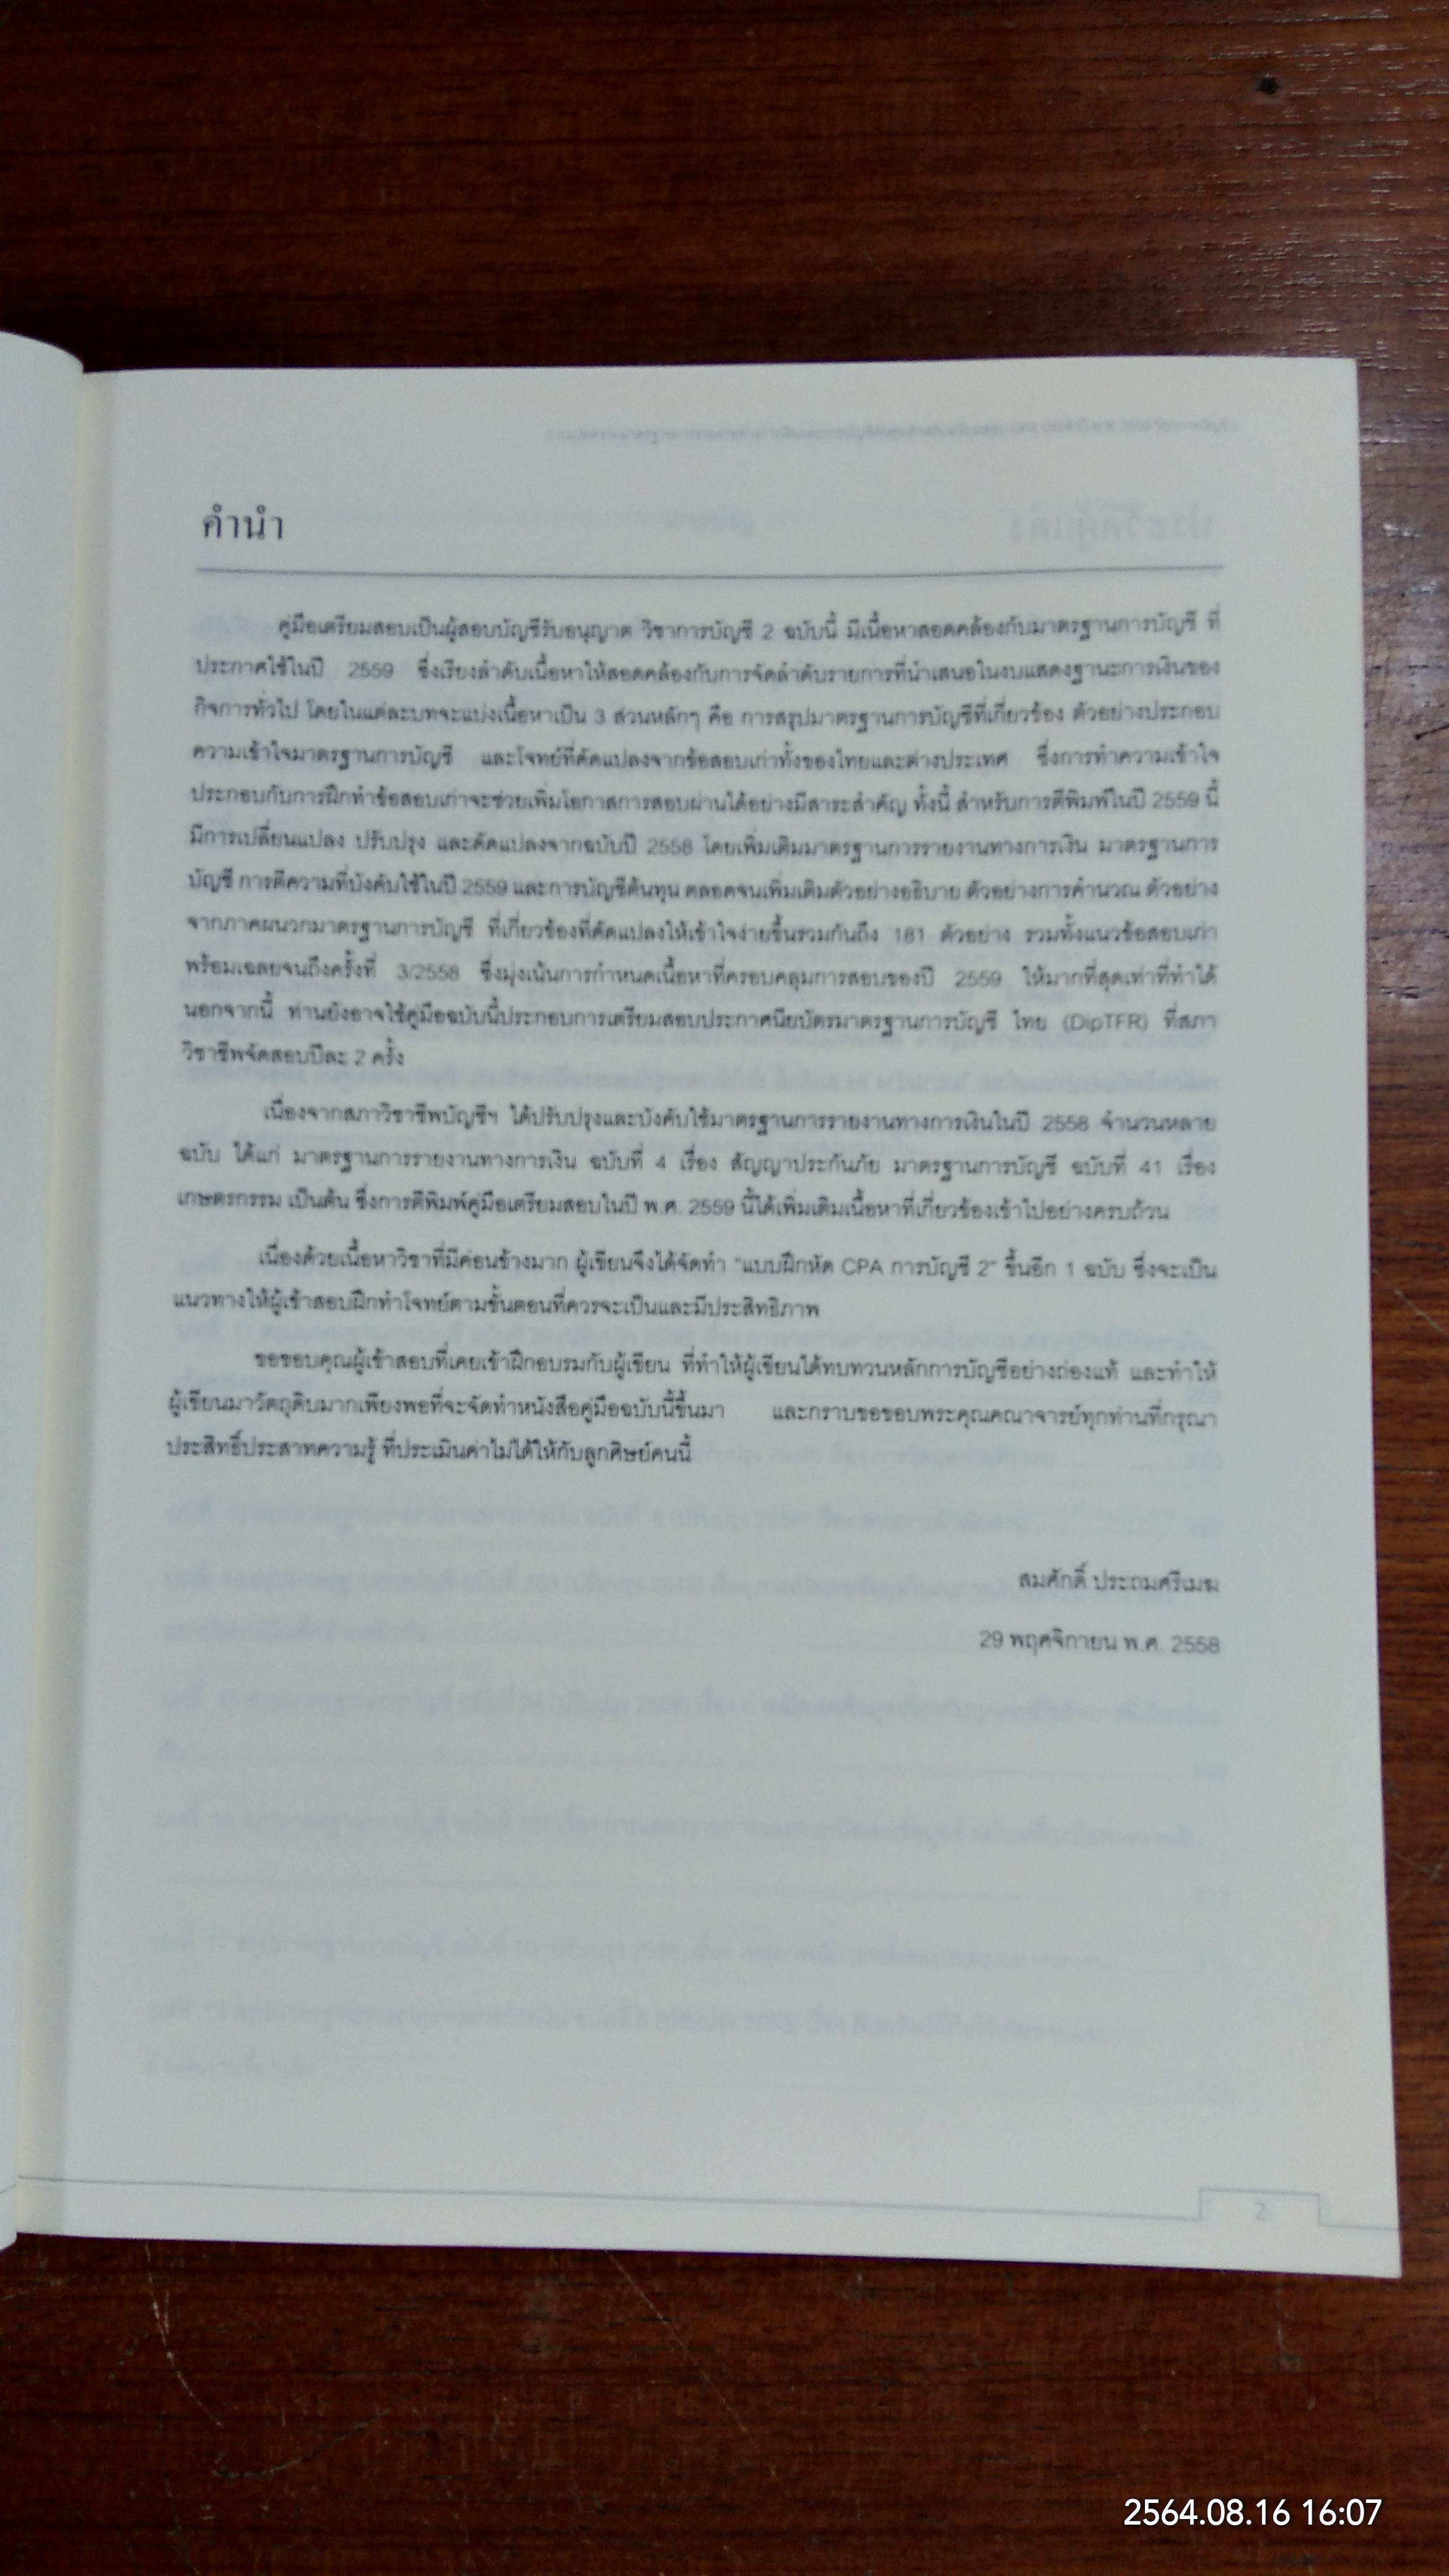 คำนำ
คู่มือเตรียมสอบเป็นผู้สอบบัญชีรับอนุญาต วิชาการบัญชี 2 ฉบับนี้ มีเนื้อหาสอดคล้องกับมาตรฐานการบัญชี ที่
ประกาศใช้ในปี 2559 ซึ่งเรียงลำดับเนื้อหาให้สอดคล้องกับการจัดลำดับรายการที่นำเสนอในงบแสดงฐานะการเงินของ
กิจการทั่วไป โดยในแต่ละบทจะแบ่งเนื้อหาเป็น 3 ส่วนหลักๆ คือ การสรุปมาตรฐานการบัญชีที่เกี่ยวข้อง ตัวอย่างประกอบ
ความเข้าใจมาตรฐานการบัญชี และโจทย์ที่ดัดแปลงจากข้อสอบเก่าทั้งของไทยและต่างประเทศ ซึ่งการทำความเข้าใจ
ประกอบกับการฝึกทำข้อสอบเก่าจะช่วยเพิ่มโอกาสการสอบผ่านได้อย่างมีสาระสำคัญ ทั้งนี้ สำหรับการตีพิมพ์ในปี 2559 นี้
มีการเปลี่ยนแปลง ปรับปรุง และดัดแปลงจากฉบับปี 2558 โดยเพิ่มเติมมาตรฐานการรายงานทางการเงิน มาตรฐานการ
บัญชี การตีความที่บังคับใช้ในปี 2559 และการบัญชีต้นทุน ตลอดจนเพิ่มเติมตัวอย่างอธิบาย ตัวอย่างการคำนวณ ตัวอย่าง
จากภาคผนวกมาตรฐานการบัญชี ที่เกี่ยวข้องที่ดัดแปลงให้เข้าใจง่ายขึ้นรวมกันถึง 181 ตัวอย่าง รวมทั้งแนวข้อสอบเก่า
พร้อมเฉลยจนถึงครั้งที่ 3/2558 ซึ่งมุ่งเน้นการกำหนดเนื้อหาที่ครอบคลุมการสอบของปี 2559 ให้มากที่สุดเท่าที่ทำได้
นอกจากนี้ ท่านยังอาจใช้คู่มือฉบับนี้ประกอบการเตรียมสอบประกาศนียบัตรมาตรฐานการบัญชี ไทย (DipTFR) ที่สภา
วิชาชีพจัดสอบปีละ 2 ครั้ง
เนื่องจากสภาวิชาชีพบัญชีฯ ได้ปรับปรุงและบังคับใช้มาตรฐานการรายงานทางการเงินในปี 2558 จำนวนหลาย
ฉบับ ได้แก่ มาตรฐานการรายงานทางการเงิน ฉบับที่ 4 เรื่อง สัญญาประกันภัย มาตรฐานการบัญชี ฉบับที่ 41 เรื่อง
เกษตรกรรม เป็นต้น ซึ่งการตีพิมพ์คู่มือเตรียมสอบในปี พ.ศ. 2559 นี้ได้เพิ่มเติมเนื้อหาที่เกี่ยวข้องเข้าไปอย่างครบถ้วน
เนื่องด้วยเนื้อหาวิชาที่มีค่อนข้างมาก ผู้เขียนจึงได้จัดทำ "แบบฝึกหัด CPA การบัญชี 2" ขึ้นอีก 1 ฉบับ ซึ่งจะเป็น
แนวทางให้ผู้เข้าสอบฝึกทำโจทย์ตามขั้นตอนที่ควรจะเป็นและมีประสิทธิภาพ
ขอขอบคุณผู้เข้าสอบที่เคยเข้าฝึกอบรมกับผู้เขียน ที่ทำให้ผู้เขียนได้ทบทวนหลักการบัญชีอย่างถ่องแท้ และทำให้
ผู้เขียนมาวัตถุดิบมากเพียงพอที่จะจัดทำหนังสือคู่มือฉบับนี้ขึ้นมา และกราบขอขอบพระคุณคณาจารย์ทุกท่านที่กรุณา
ประสิทธิ์ประสาทความรู้ ที่ประเมินค่าไม่ได้ให้กับลูกศิษย์คนนี้
สมศักดิ์ ประถมศรีเมฆ
29 พฤศจิกายน พ.ศ. 2558
2
2564.08.16 16:07